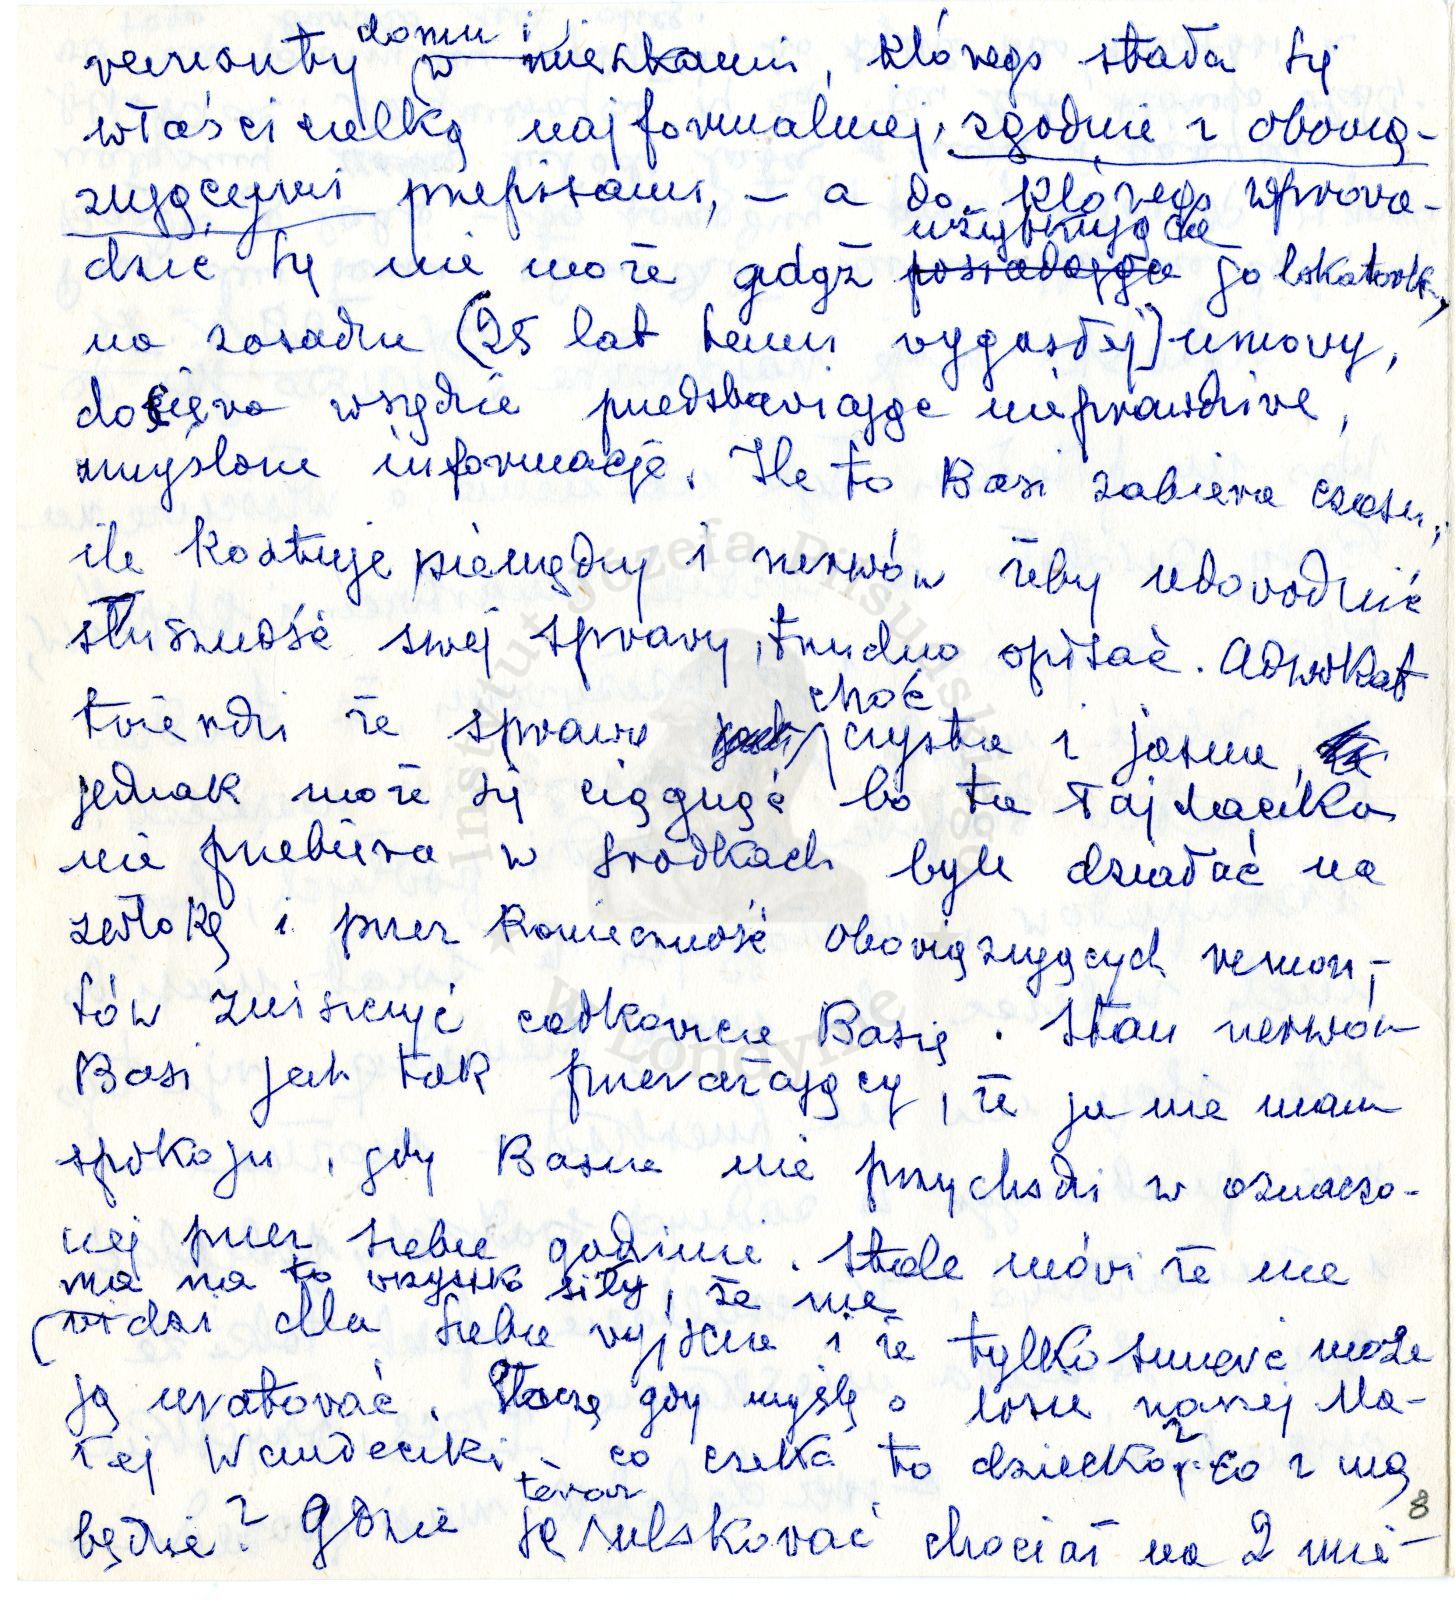 domu i
remonty w mieszkaniu, którego stała się
właścicielką najformalniej, zgodnie z obowią-
zującymi przepisami, – a do którego wprowa-
użytkująca
dzić się nie może gdyż posiadająca go lokatorka,
na zasadzie (25 lat temu wygasłej) umowy,
dociera wszędzie przedstawiając nieprawdziwe,
zmyślone informacje. Ile to Basi zabiera czasu,
ile kosztuje pieniędzy i nerwów żeby udowodnić
słuszność swej sprawy, trudno opisać. Adwokat
choć
twierdzi że sprawa jest czysta i jasna,
jednak może się ciągnąć bo ta łajdaczka
nie przebiera w środkach byle działać na
zwłokę i przez konieczność obowiązujących remon-
tów zniszczyć całkowicie Basię. Stan nerwów
Basi jak tak przerażający, że ja nie mam
spokoju, gdy Basia nie przychodzi w oznaczo-
nej przez siebie godzinie. Stale mówi że nie
ma na to wszystko siły, że nie
widzi dla siebie wyjścia i że tylko śmierć może
ją uratować. Płaczę gdy myślę o losie naszej Ma-
łej Wandeczki, co czeka to dziecko? co z nią
teraz
będzie? Gdzie ją ulokować chociaż na 2 mie-
8
Instytut Józefa Piłsudskiego
w Londynie